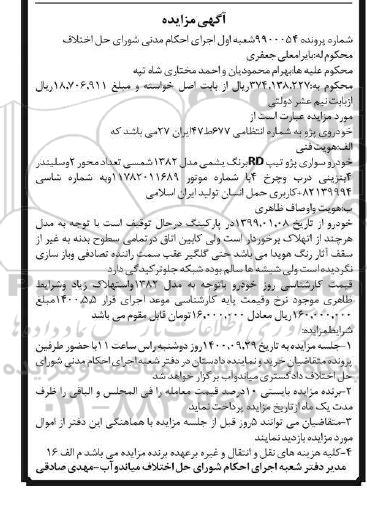 آگهی مزایده
شماره پرونده ۹۹۰۰۰۵۴شعبه اول اجرای احکام مدنی شورای حل اختلاف
محکوم له:بایرامعلی جعفری
محکوم علیه ها:بهرام محمودیان و احمد مختاری شاه تپه
محکوم به:۳۷۴،۱۳۸،۲۲۷ریال از بابت اصل خواسته و مبلغ ۱۸،۷۰۶،۹۱۱ریال
ازبابت نیم عشر دولتی
مورد مزایده عبارت است از
خودروی پژو به شماره انتظامی ۶۷۷ط۴۷ایران ۲۷می باشد که
الف:هویت فنی
خودرو سواری پژو تیپ RDبرنگ یشمی مدل ۱۳۸۲شمسی تعداد محور ۲وسلیندر
۴بنزینی درب وچرخ ۴با شماره موتور ۱۱۷۸۲۰۱۱۶۸۹وبه شماره شاسی
۸۲۱۳۹۹۹۴+کاربری حمل انسان تولید ایران اسلامی
ب:هویت واوصاف ظاهری
خودرو از تاریخ ۱۳۹۹،۰۱،۰۸در پارکینگ درحال توقیف است با توجه به مدل
هرچند از انهلاک برخوردار است ولی کابین اتاق در تمامی سطوح بدنه به غیر از
سقف آثار رنگ هویدا می باشد حتی گلگیر عقب سمت راننده تصادفی وباز سازی
نگردیده است ولی شیشه ها سالم بوده شبکه جلوترکیدگی دارد
قیمت کارشناسی روز خودرو باتوجه به مدل ۱۳۸۲واستهلاک زیاد وشرایط
ظاهری موجود نرخ وقیمت پایه کارشناسی موعد اجرای قرار ۱۴۰۰،۵،۵مبلغ
۱۶۰،۰۰۰،۰۰۰ریال معادل ۱۶،۰۰۰،۰۰۰تومان قابل مقوم می باشد
شرایط مزایده:
۱-جلسه مزایده به تاریخ ۱۴۰۰،۰۹،۲۹روز دوشنبه راس ساعت ۱۱با حضور طرفین
پرونده متقاضیان خرید و نماینده دادستان در دفتر شعبه اجرای احکام مدنی شورای
حل اختلاف دادگستری میاندواب برگزار خواهد شد
۲-برنده مزایده بایستی ۱۰درصد قیمت معامله را فی المجلس و الباقی را ظرف
مدت یک ماه از تاریخ مزایده پرداخت نماید
۳-متقاضیان می توانند ۵روز قبل از جلسه مزایده با هماهنگی این دفتر از اموال
مورد مزایده بازدید نمایند
۴-کلیه هزینه های نقل و انتقال و غیره برعهده برنده مزایده می باشد م الف ۱۶
مدیر دفتر شعبه اجرای احکام شورای حل اختلاف میاندوآب-مهدی صادقی